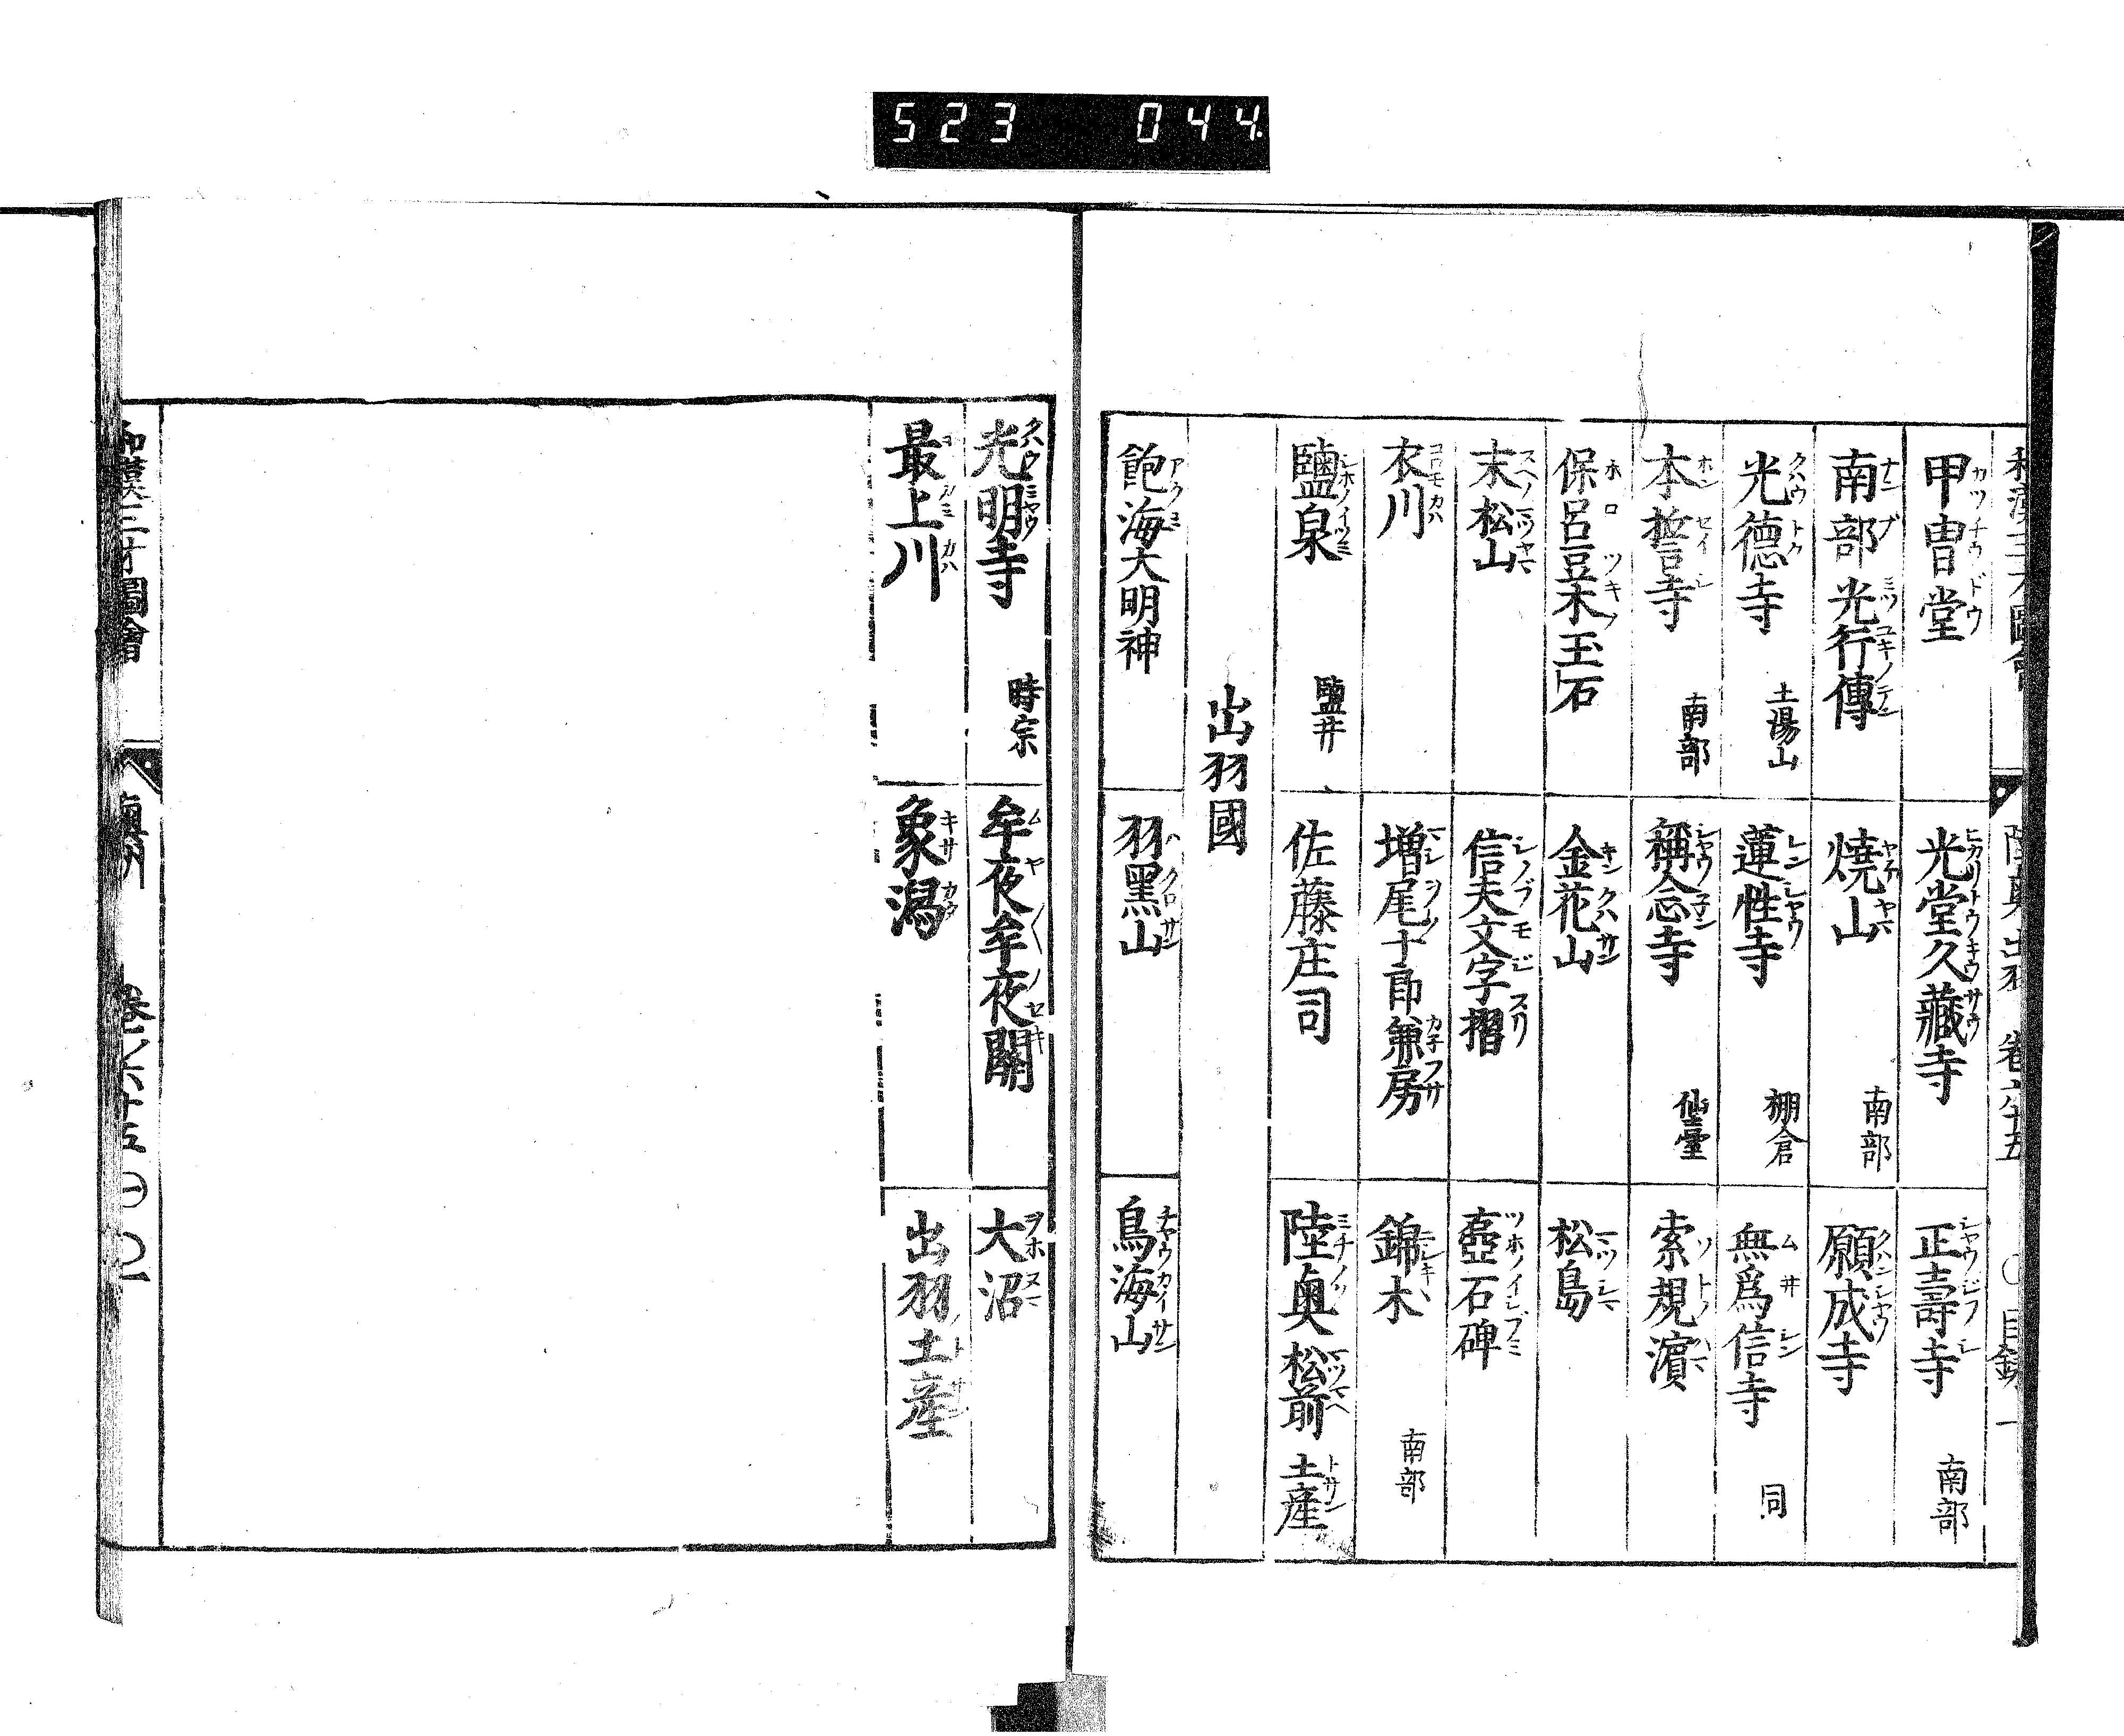 523 044
和漢三才圖會 陸奥出羽 卷六十五 ○目録 一
甲冑堂 光堂久藏寺 正壽寺 南部
南部光行傳 燒山 南部 願成寺
光德寺 土湯山 蓮性寺 棚倉 無爲信寺 同
本誓寺 南部 稱念寺 仙臺 索規濵
保呂豆木玉石 金花山 松島
末松山 信夫文字摺 壺石碑
衣川 増尾十郎兼房 錦木 南部
鹽泉 鹽井 佐藤庄司 陸奥松前土產
出羽國
飽海大明神 羽黑山 鳥海山
光明寺 時宗 牟夜牟夜關 大沼
最上川 象潟 出羽土產
和漢三才圖會 奥羽 卷之六十五